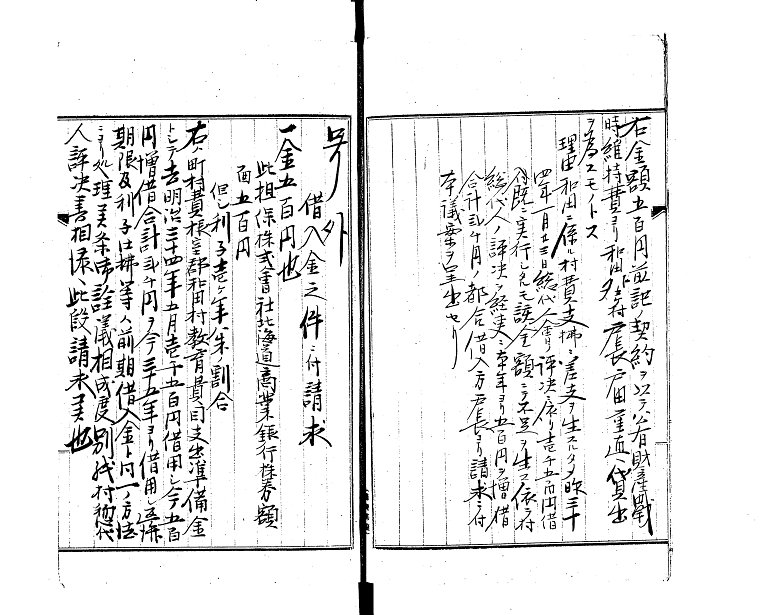 右金額五百円前記ノ契約ヲ以テ公有財産戰
時維持費ヨリ和田外 村戸長 田重近ヘ貸出
ヲ為スモノトス
理由 和田ニ係ル村費支拂ニ差支ヲ生スルタメ昨三十
四年一月廿三日総代人會ノ評決ニ依リ壱千五百円借
入既ニ実行シタルモ該金額ニテ不足ヲ生ス依テ村
総代人ノ評決ヲ経更ニ本年ヨリ五百円ヲ増借
合計弐千円ノ都合借入方戸長ヨリ請求ニ付
本議案ヲ呈出セリ
号外
借入金之件ニ付請求
一金五百円也
此担保株式會社北海道商業銀行株券額
面五百円
但シ利子壱ヶ年八朱ノ割合
右ハ町村費 郡和田村教育費目支出準備金
トシテ去明治三十四年五月壱千五百円借用シ今五百
円増借合計弐千円ヲ今三十五年ヨリ借用シ返済
期限及利子仕拂等ハ前期借入金ト同一ノ方法
ニヨリ処理 条 詮議相成度別紙村総代
人評決書相添ヘ此段請求 也